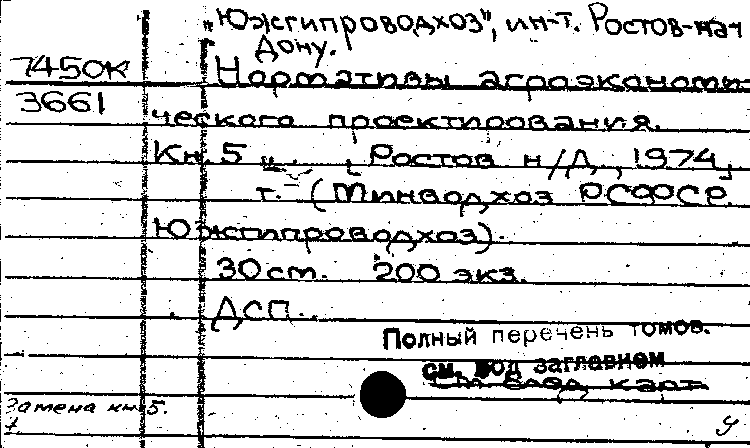 „Южгипроводхоз", ин-т. Ростов-на
Дону.
7450к Нормативы агроэкономи-
3661 ческого проектирования.
Кн. 5 [Ростов н/Д, 1974,
т. (Минводхоз РСФСР.
Южгипроводхоз).
30 см. 200 экз.
ДСП.
Полный перечень томов.
см. под заглавием
Замена кн 5.